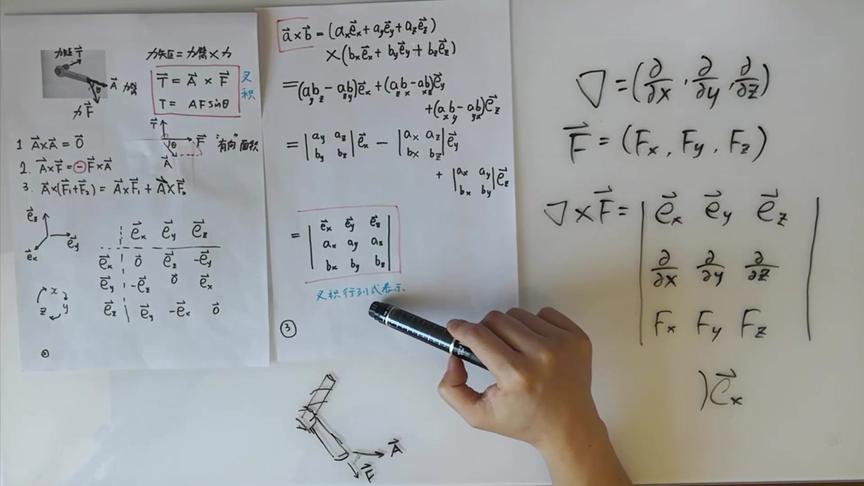 力矩 T⃗
A⃗ 力臂
θ
力 F⃗
力矩 = 力臂 × 力
T⃗ = A⃗ × F⃗
T = AF sinθ
叉积
T⃗
θ
F⃗
A⃗
"有向"面积
1 A⃗×A⃗ = 0⃗
2. A⃗×F⃗ = -F⃗×A⃗
3. A⃗×(F⃗₁+F⃗₂) = A⃗×F⃗₁ + A⃗×F⃗₂
e⃗z
e⃗y
e⃗x
x
z y
e⃗x e⃗y e⃗z
e⃗x 0⃗ e⃗z -e⃗y
e⃗y -e⃗z 0⃗ e⃗x
e⃗z e⃗y -e⃗x 0⃗
a⃗×b⃗ = (axe⃗x+aye⃗y+aze⃗z)
×(bxe⃗x+bye⃗y+bze⃗z)
=(aybz-azby)e⃗x+(azbx-axbz)e⃗y
+(axby-aybx)e⃗z
= |ay az| e⃗x - |ax az| e⃗y
|by bz| |bx bz|
+ |ax ay| e⃗z
|bx by|
= |e⃗x e⃗y e⃗z|
|ax ay az|
|bx by bz|
叉积行列式表示
③
A⃗
F⃗
∇=(∂/∂x, ∂/∂y, ∂/∂z)
F⃗ = (Fx, Fy, Fz)
∇×F⃗ = |e⃗x e⃗y e⃗z|
|∂/∂x ∂/∂y ∂/∂z|
|Fx Fy Fz|
)e⃗x